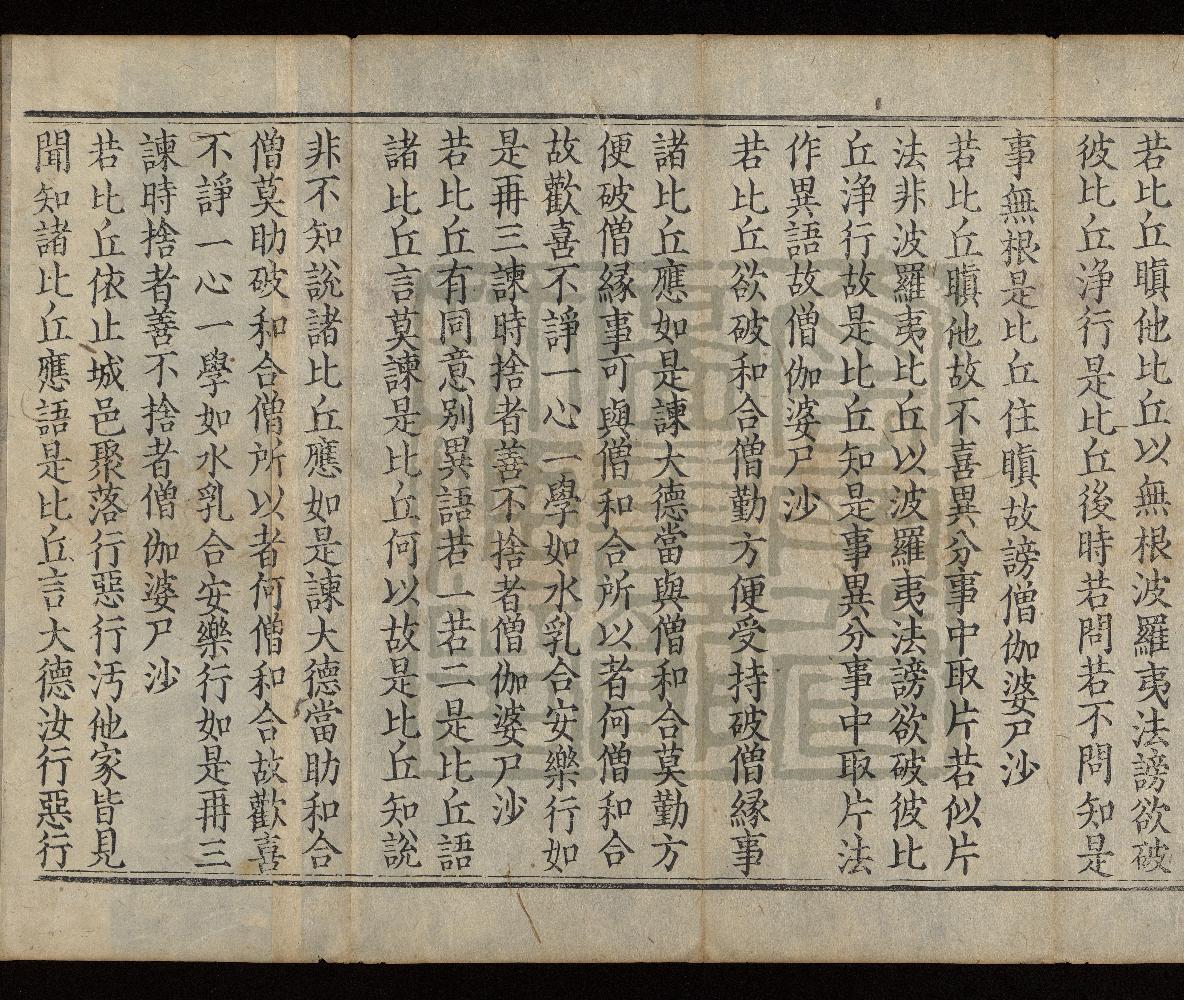 若比丘瞋他比丘以無根波羅夷法謗欲破
彼比丘浄行是比丘後時若問若不問知是
事無根是比丘住瞋故謗僧伽婆尸沙
若比丘瞋他故不喜異分事中取片若似片
法非波羅夷比丘以波羅夷法謗欲破彼比
丘浄行故是比丘知是事異分事中取片法
作異語故僧伽婆尸沙
若比丘欲破和合僧勤方便受持破僧縁事
諸比丘應如是諫大德當與僧和合莫勤方
便破僧縁事可與僧和合所以者何僧和合
故歡喜不諍一心一學如水乳合安樂行如
是再三諫時捨者善不捨者僧伽婆尸沙
若比丘有同意别異語若一若二是比丘語
諸比丘言莫諫是比丘何以故是比丘知說
非不知說諸比丘應如是諫大德當助和合
僧莫助破和合僧所以者何僧和合故歡喜
不諍一心一學如水乳合安樂行如是再三
諫時捨者善不捨者僧伽婆尸沙
若比丘依止城邑聚落行惡行汚他家皆見
聞知諸比丘應語是比丘言大德汝行惡行